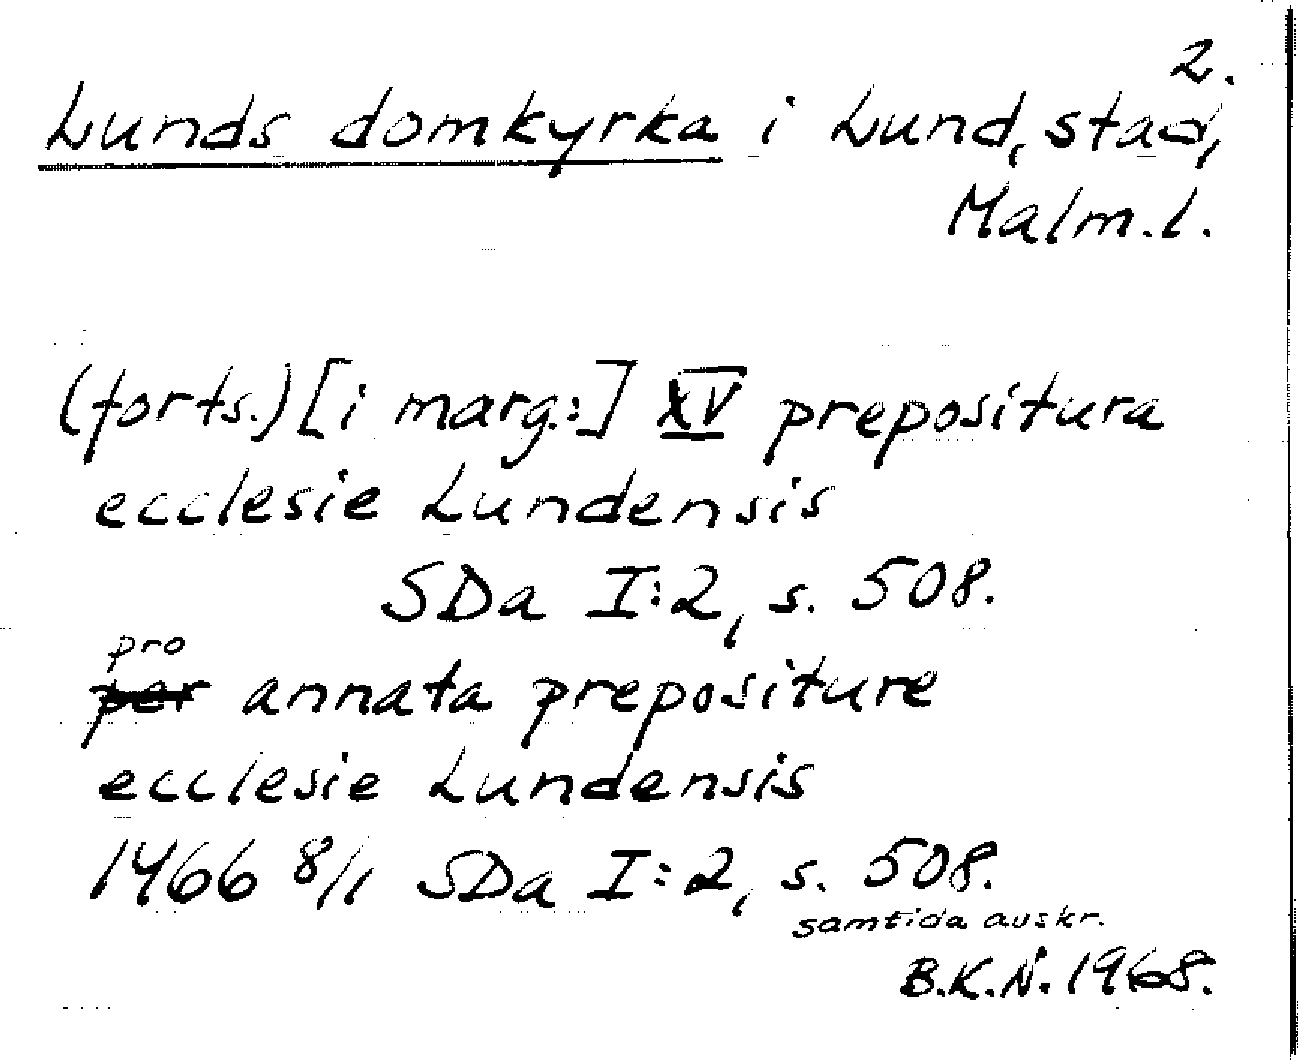 2.
Lunds domkyrka i Lund, stad,
Malm.l.
(forts.) [i marg.:] XV prepositura
ecclesie Lundensis
SDa I:2, s. 508.
pro
per annata prepositure
ecclesie Lundensis
1466 8/1 SDa I:2, s. 508.
samtida avskr.
B.K.N. 1968.